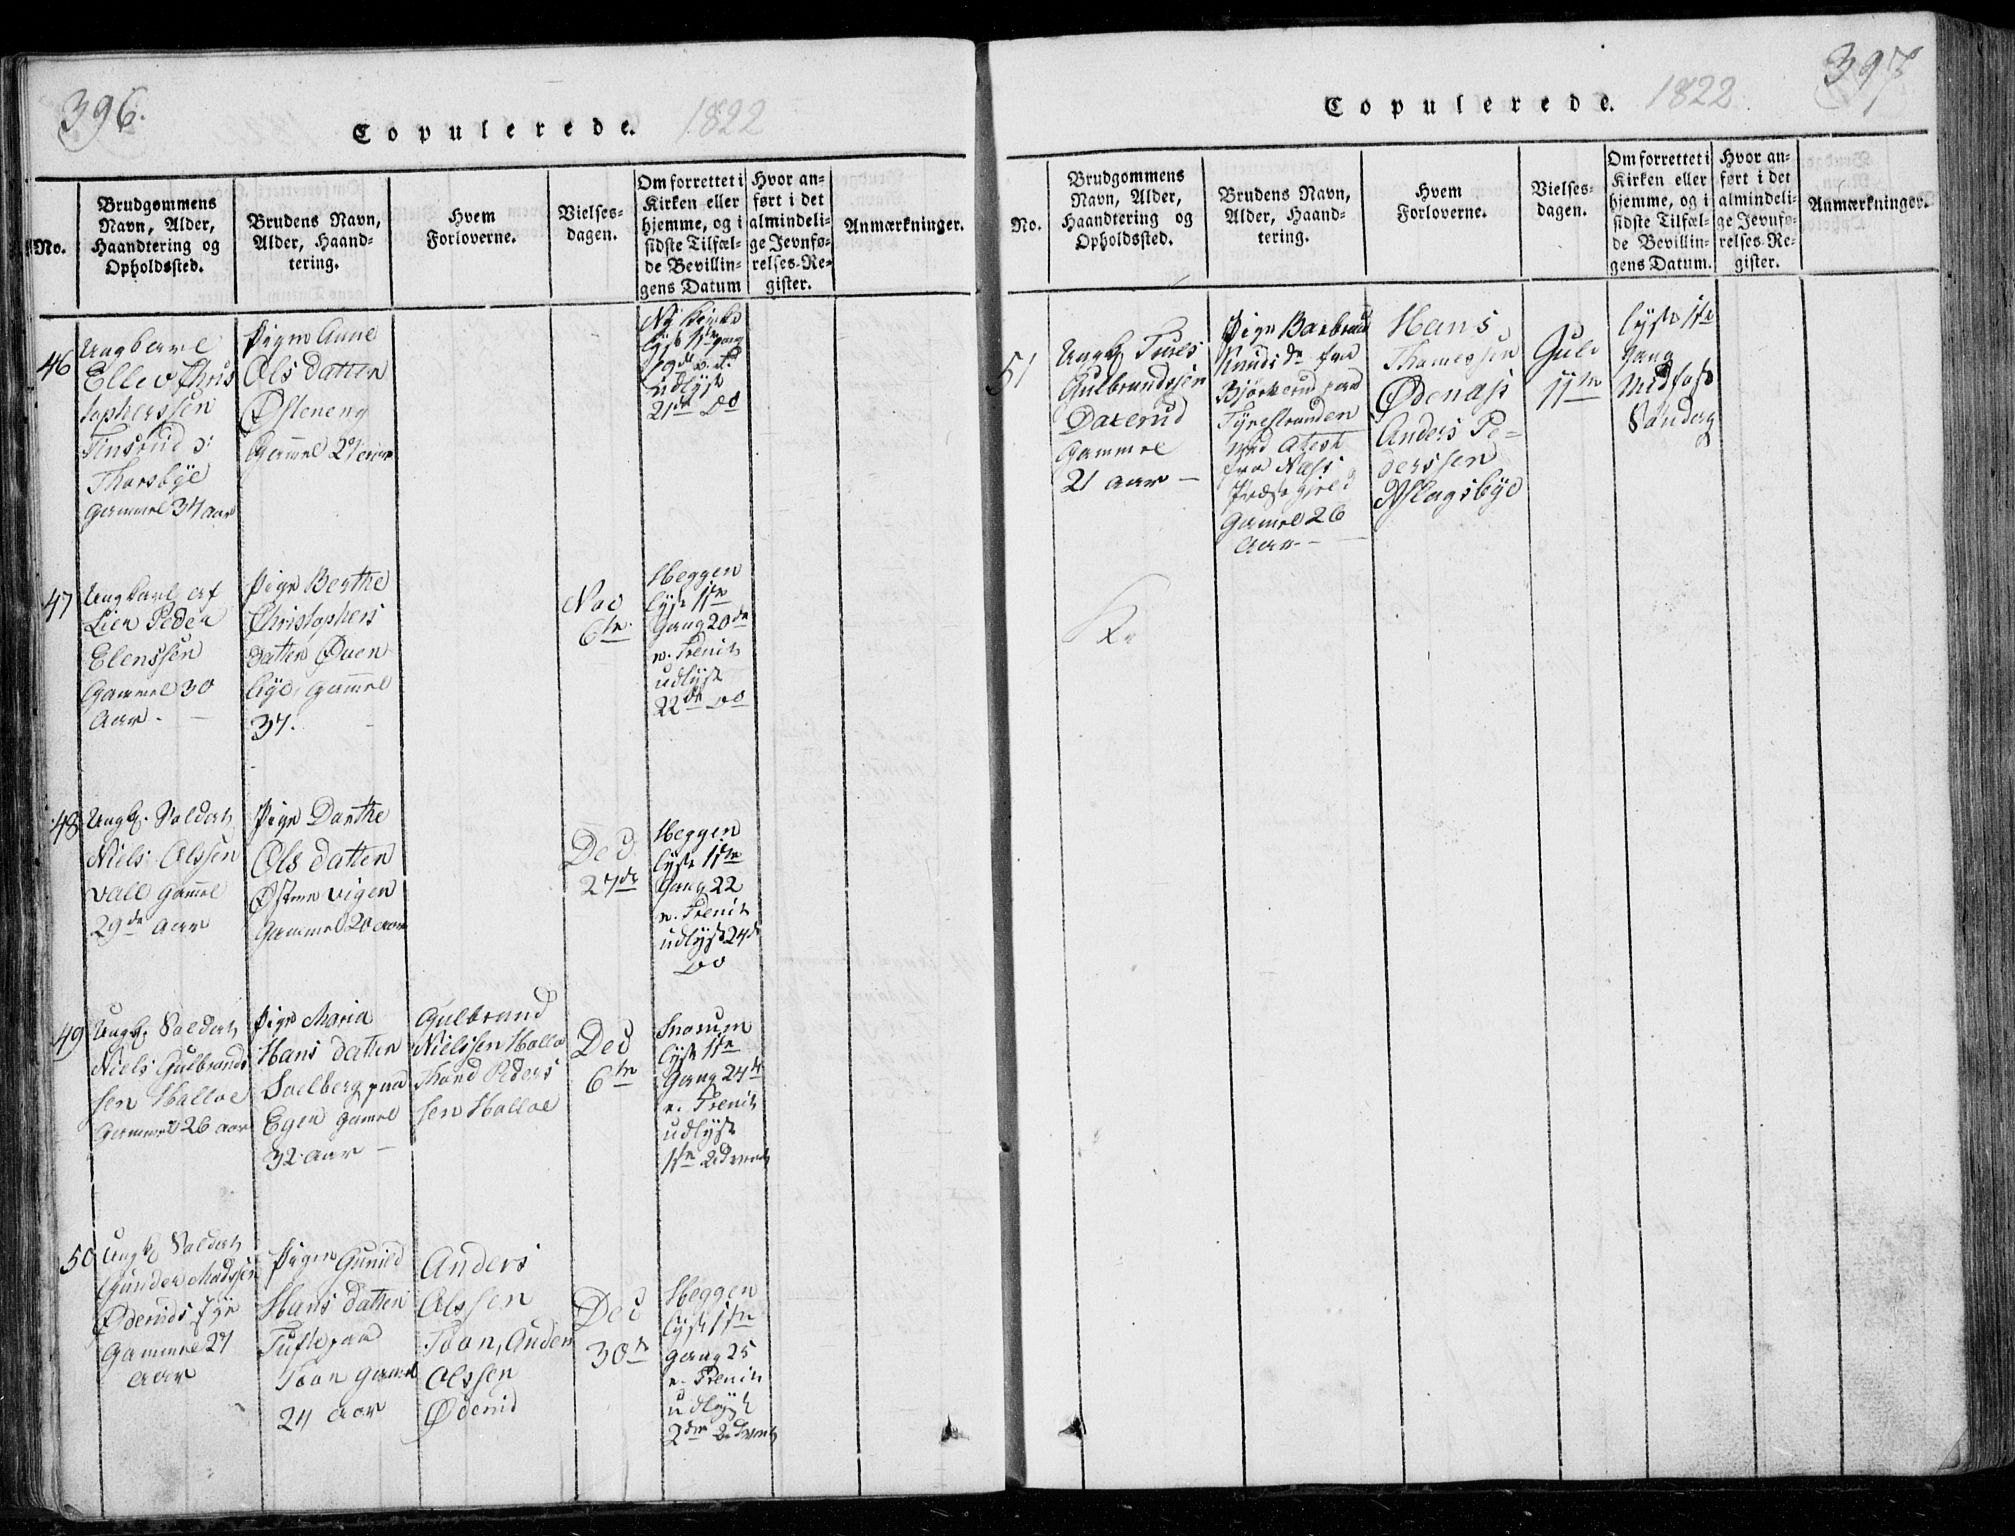 396.
Copulerede. 1822
No.
Brudgommens
Navn, Alder,
Haandtering og
Opholdssted.
Brudens Navn,
Alder, Haand-
tering.
Hvem
Forloverne.
Vielses-
dagen.
Om forrettet i
Kirken eller
hjemme, og i
sidste Tilfæl-
de Bevillin-
gens Datum
Hvor an-
ført i det
almindeli-
ge Jevnfø-
relses-Re-
gister.
Anmærkninger.
46
Ungkarl
Ellev Chris
tophersen
Finsrud
Thorsbye
gammel 34 aar
Pigen Anne
Ols datter
Østeneng
Gamel 29
Ny Kirke
lyst 1ste gang
19de
udlyst
21de Do
47
Ungkarl af
Lier Peder
Elenssen
Gammel 30
Aar. —
Pige Berthe
Christophers
datter Øven
bye, gammel
37. —
Nov
6te
Heggen
lyst 1ste
Gang 20de
n. Trenit
udlyst
22de Do
48
Ungk. Soldat
Niels Olssen
Vald gamel
29de aar
Pige Dorthe
Ols datter
Østen vigen
gammel 20 aar
Dec
27de
Heggen
lyst 1ste
Gang 22
n. Trenit
udlyst 24d
Do
49
Ungk. Soldat
Niels Gulbrands
sen Halloe
Gammel 26 aar
Pige Maria
Hans datter
Soelberg paa
Egen gamel
32 aar —
Gulbrand
Nielssen Halloe
Thord Peders
sen Halloe
Dec
6te
Snarum
lyst 1ste
Gang 24de
n. Trenit
udlyst
1ste Advent
50
Ungk Soldat
Gunder Madssen
Ødenids
Gammel 27
aar
Pigen Gunild
Hans datter
Tufte paa
Foon gamel
24 aar
Anders
Olssen
Foon, Anders
Olssen
Ødenid
Dec
30te
Heggen
lyst 1ste
gang 25
n. Trenit
udlyst
2den Advent
397
Copulerede. 1822
No.
Brudgommens
Navn, Alder,
Haandtering og
Opholdssted.
Brudens Navn,
Alder, Haand-
tering.
Hvem
Forloverne.
Vielses-
dagen.
Om forrettet i
Kirken eller
hjemme, og i
sidste Tilfæl-
de Bevillin-
gens Datum.
Hvor an-
ført i det
almindeli-
ge Jevnfø-
relses-Re-
gister.
Anmærkninger.
51
Ungk Tures
Gulbrandssen
Daxerud
Gammel
21 aar —
Pige Barbra
Knudsdr fra
Bjørkerud paa
Tyrestranden
med Atest
fra Næss
Præstegield
Gamel 26
Aar —
Hans
Thomessen
Ødenass
Anders Pe=
derssen
Aslagsbye
Jule
11te
lyst 1ste
gang
Midfaste
Søndag